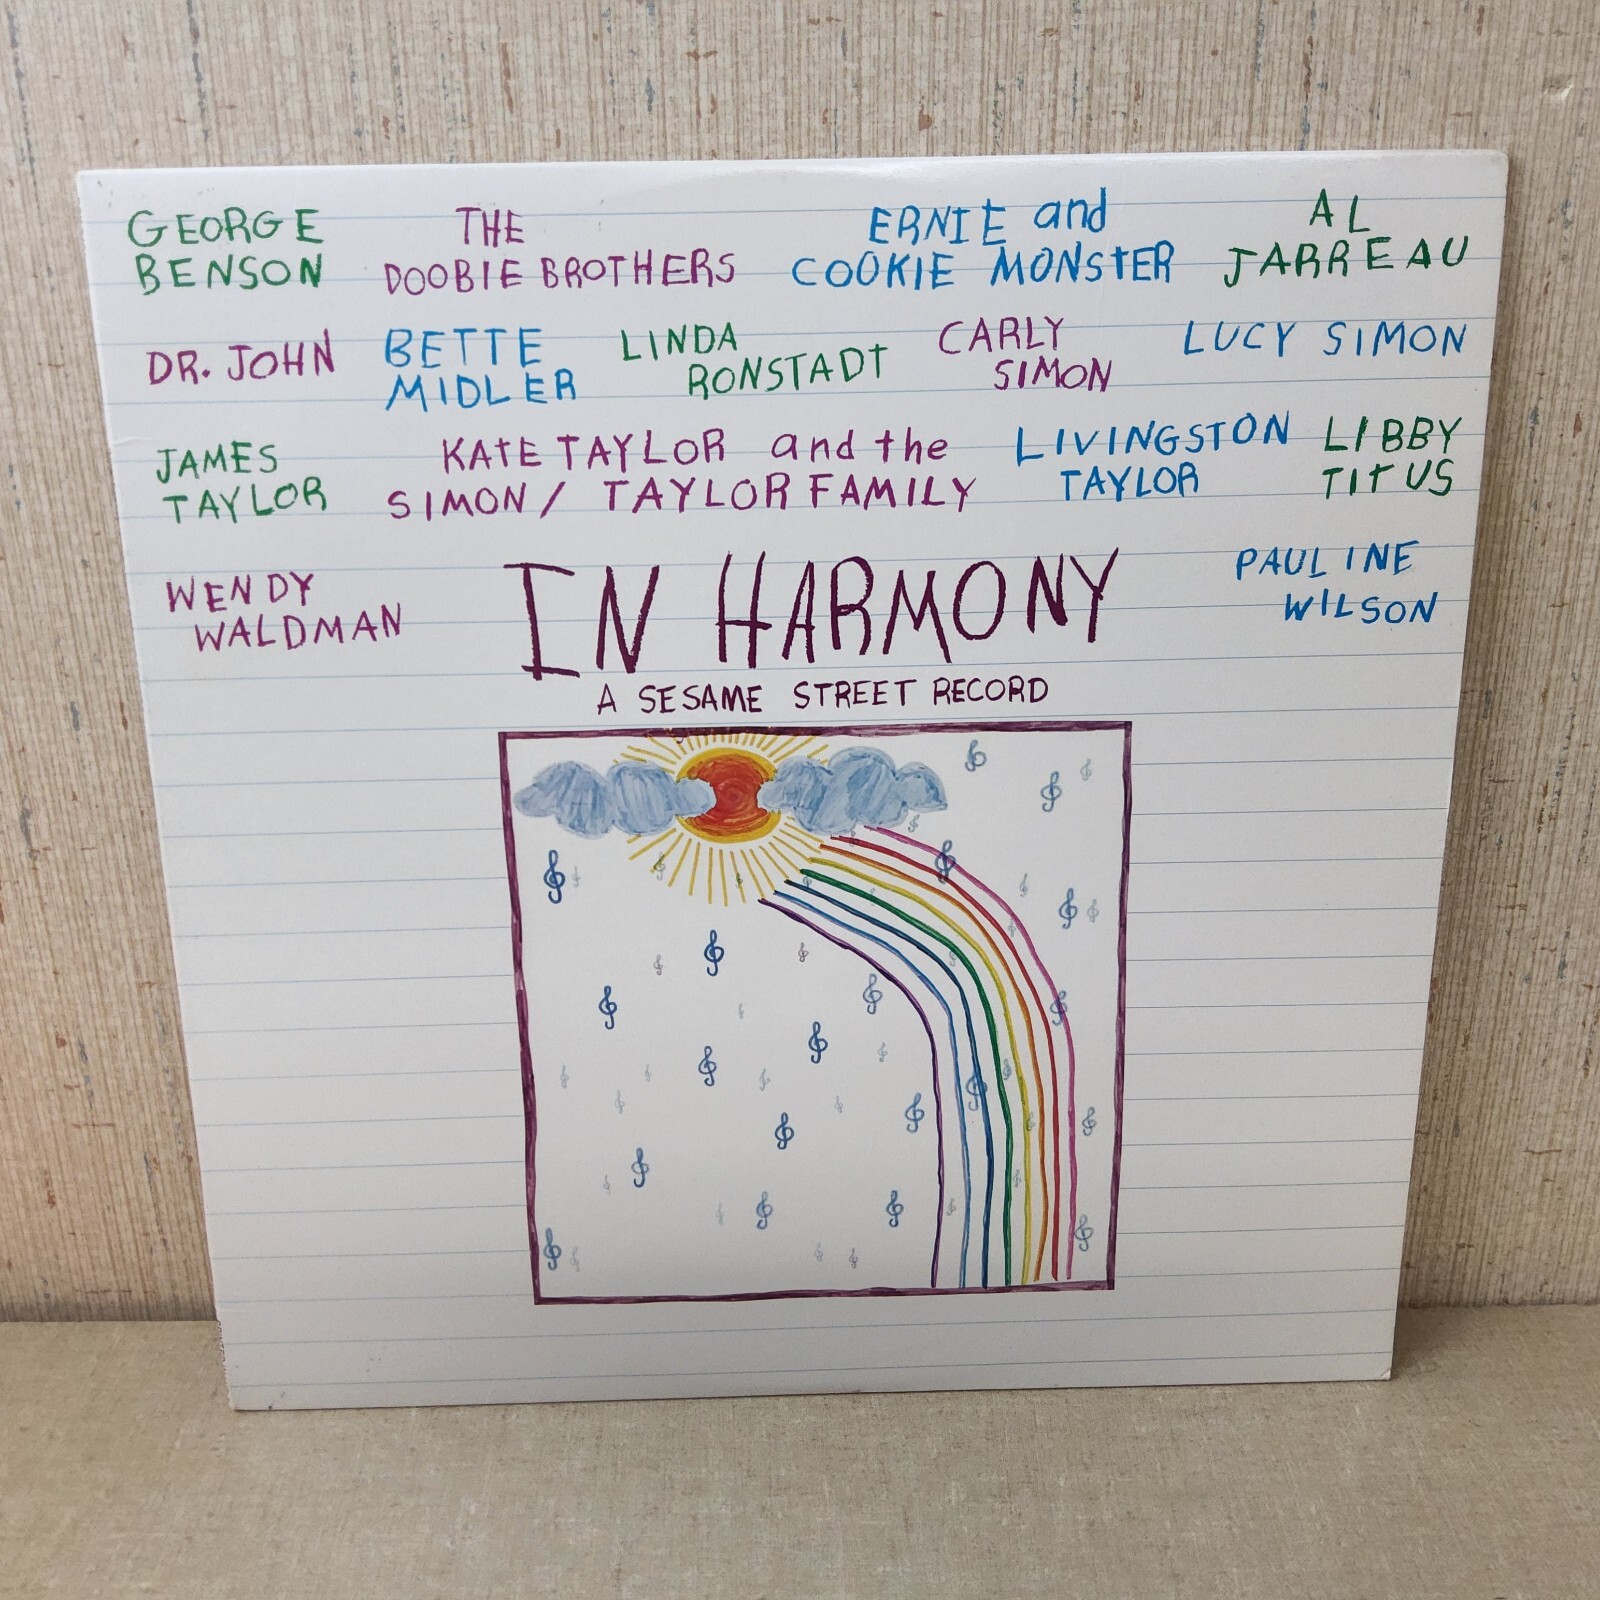 GEORGE
BENSON
THE
DOOBIE BROTHERS
ERNIE and
COOKIE MONSTER
AL
JARREAU
DR. JOHN
BETTE
MIDLER
LINDA
RONSTADT
CARLY
SIMON
LUCY SIMON
JAMES
TAYLOR
KATE TAYLOR and the
SIMON / TAYLOR FAMILY
LIVINGSTON
TAYLOR
LIBBY
TITUS
WENDY
WALDMAN
IN HARMONY
A SESAME STREET RECORD
PAULINE
WILSON